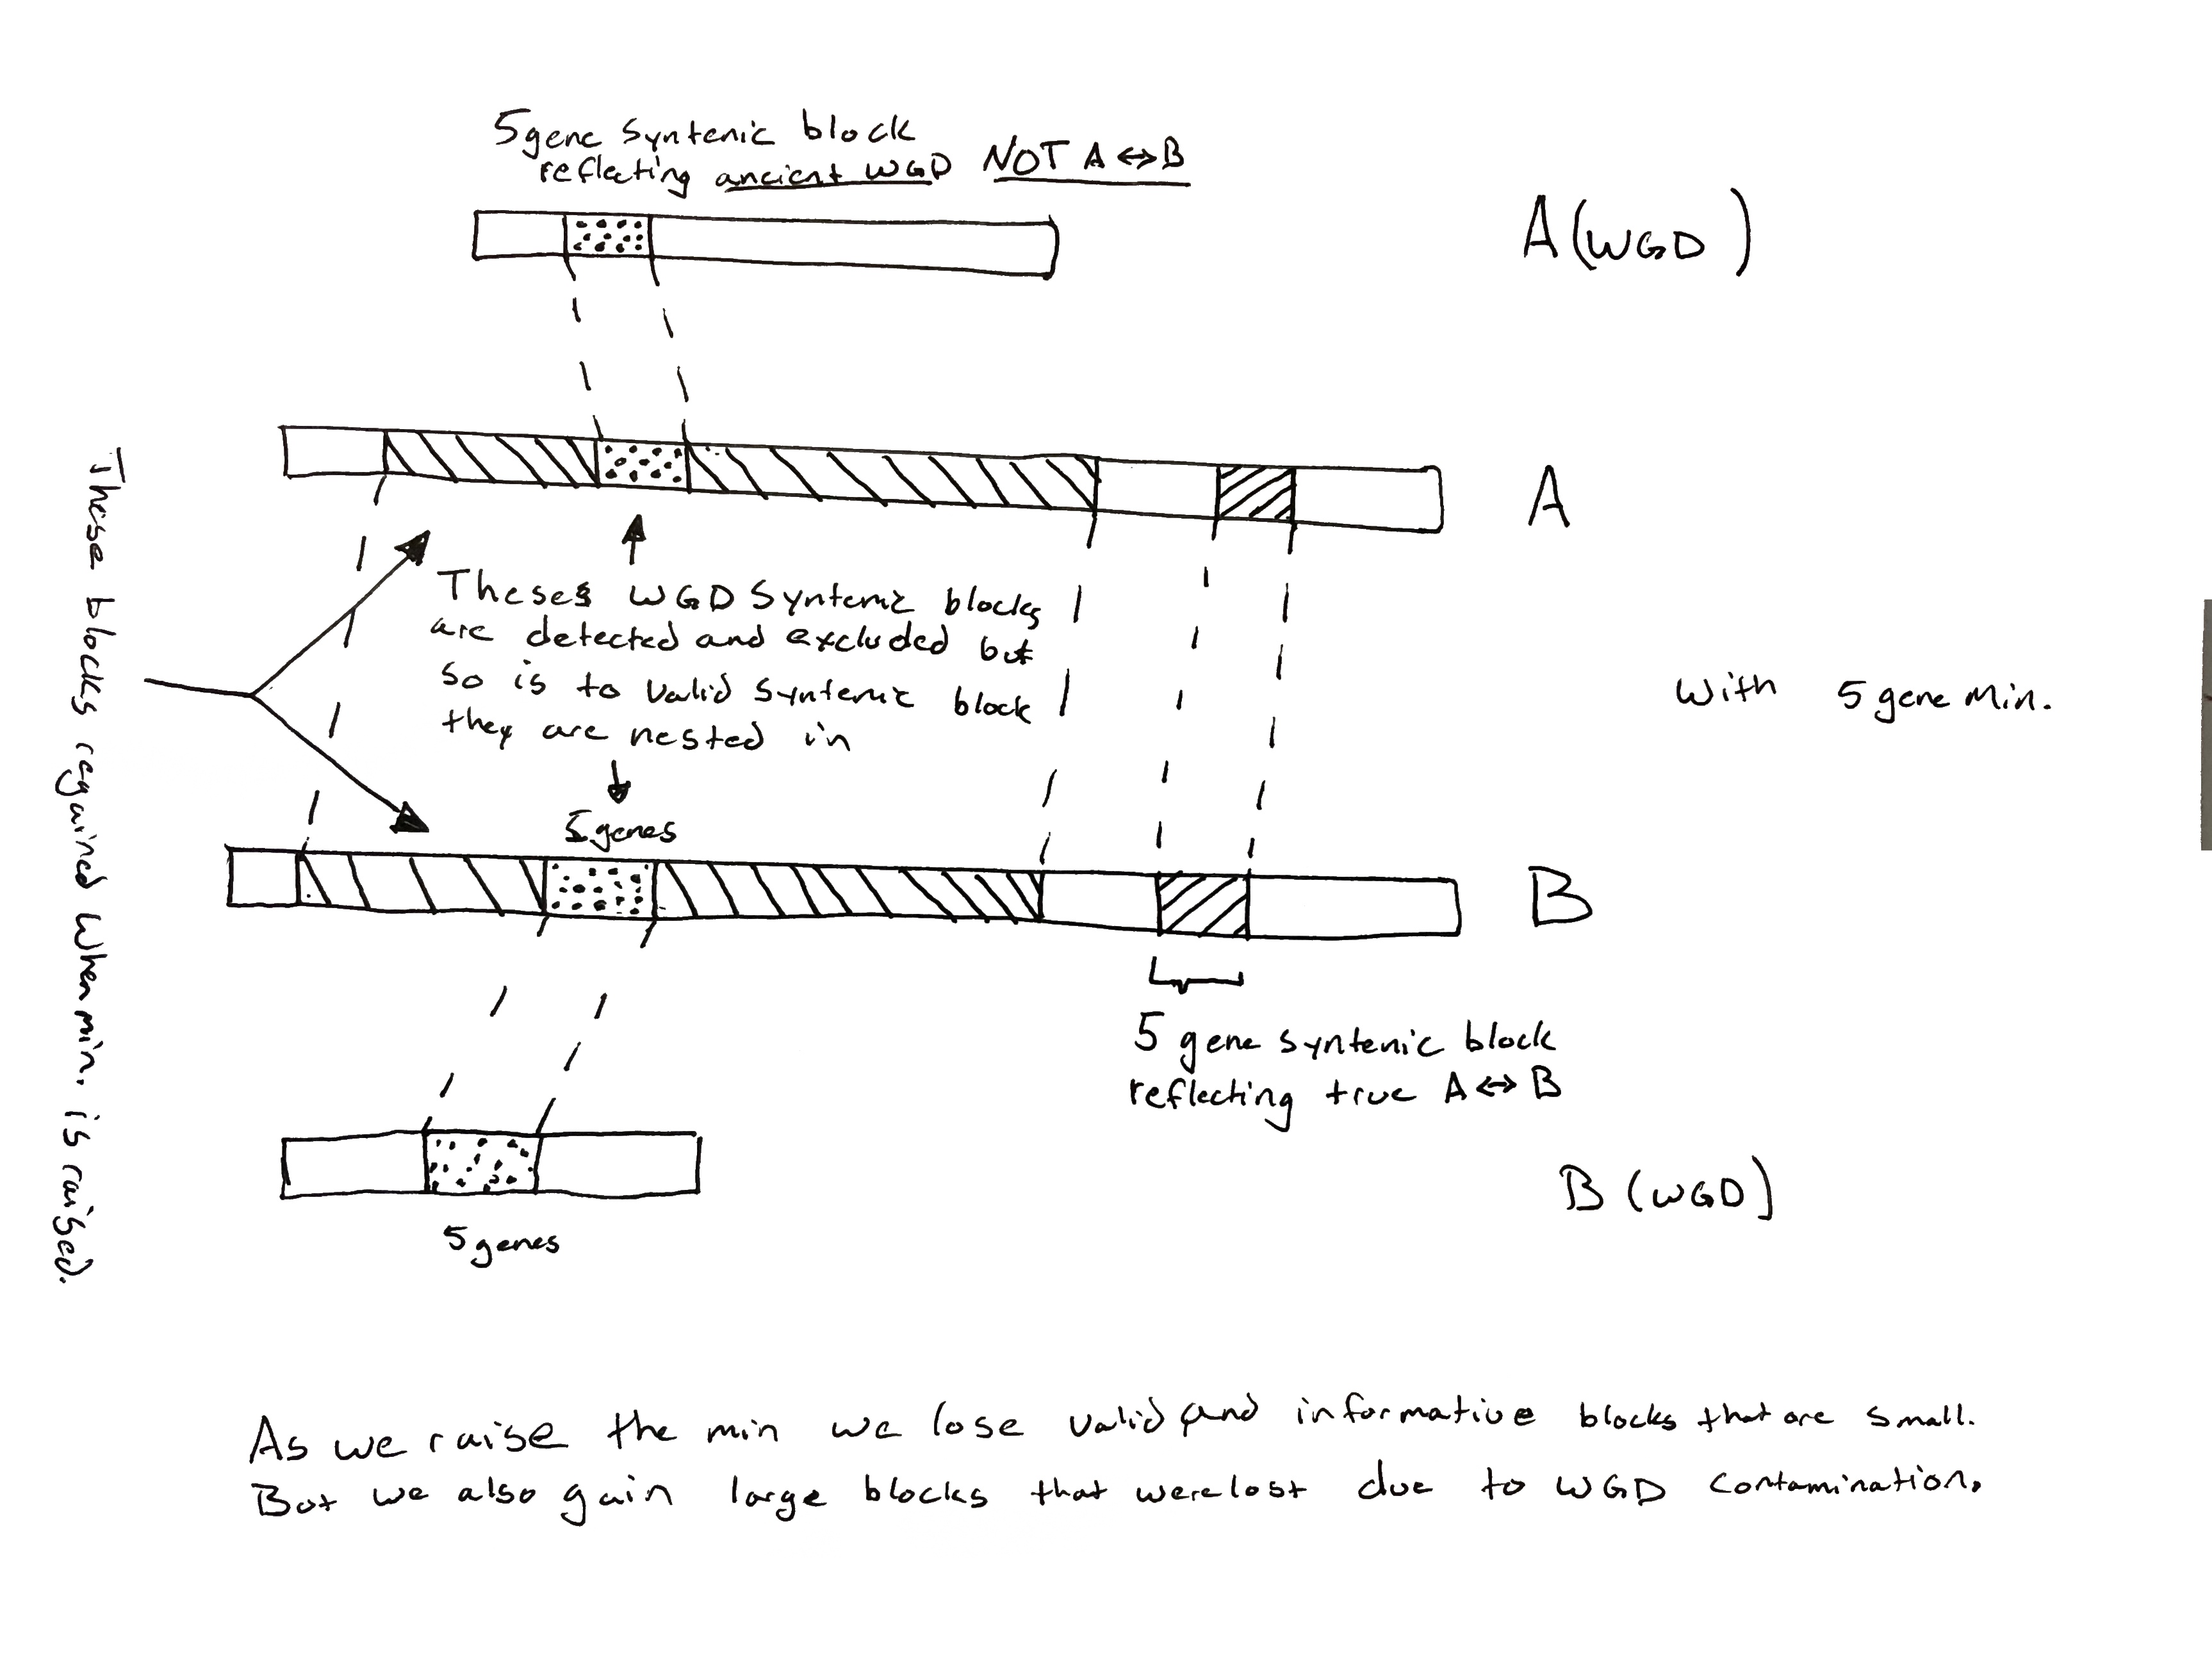 5 gene syntenic block
reflecting ancient WGD NOT A ↔ B
A (WGD)
A
Theses WGD Syntenic blocks
are detected and excluded but
so is to valid syntenic block
they are nested in
With 5 gene Min.
These blocks regained when min. is raised.
5 genes
B
5 gene syntenic block
reflecting true A ↔ B
B (WGD)
5 genes
As we raise the min we lose valid and informative blocks that are small.
But we also gain large blocks that were lost due to WGD contamination.